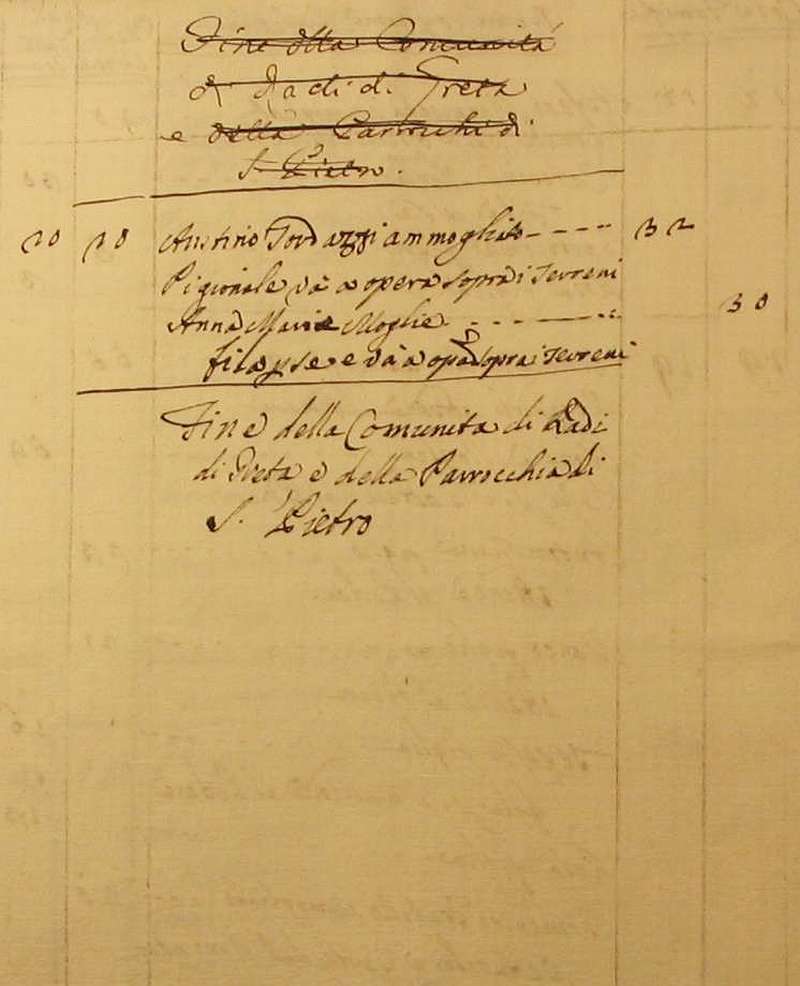 Fine della Comunità
di Radi di Creta
e della Parrochi di
S. Pietro.
Ansano Tordazzi ammogliato - - - - 32
Pigionale và a opera sopra i Terreni
Anna Maria Moglie - - - - 30
fila p se e và a opa sopra i Terreni
Fine della Comunita di Radi
di Creta e della Parrocchia di
S. Pietro